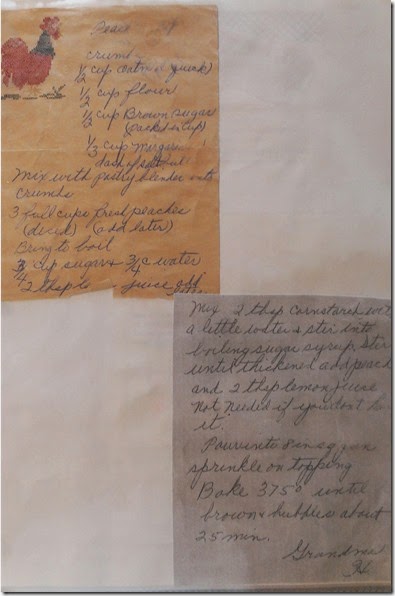 Peac
crumb
1/2 cup Oatm (quick)
1/2 cup flour
1/2 cup Brown sugar
(packed in cup)
1/3 cup Margar
dash of salt
Mix with pastry blender into
crumbs
3 full cups fresh peaches
(sliced) (add later)
Bring to boil
3/4 cup sugar & 3/4 c water
2 tbsp le juice
Mix 2 tbsp cornstarch wit
a little water & stir into
boiling sugar syrup. Stir
until thickened add peach
and 2 tbsp lemon juice
Not needed if you dont ha
it.
Pour into 8 in sq pan
sprinkle on topping
Bake 375° until
brown & bubbles about
25 min.
Grandma
H.